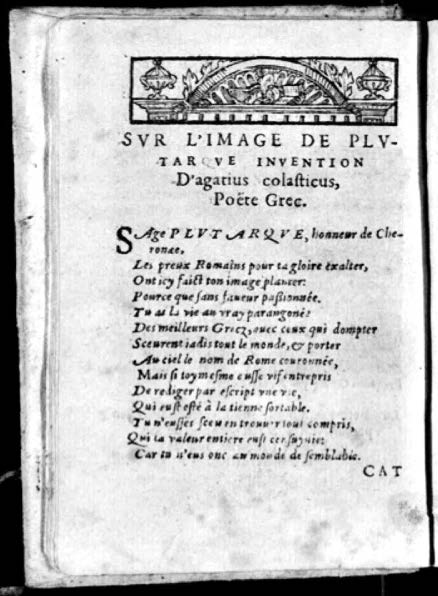 SVR L'IMAGE DE PLV-
TARQVE INVENTION
D'agatius colasticus,
Poëte Grec.
SAge PLVTARQVE, honneur de Che-
ronæe,
Les preux Romains pour ta gloire exalter,
Ont icy faict ton image planter:
Pource que sans faueur passionnée.
Tu as la vie au vray parangonée
Des meilleurs Grecz, auec ceux qui dompter
Sceurent iadis tout le monde, & porter
Au ciel le nom de Rome couronnée,
Mais si toymesme eusse vif entrepris
De rediger par escript vne vie,
Qui eust esté à la tienne sortable.
Tu n'eusses sceu en trouuer tout compris,
Qui ta valeur entiere eust
Car tu n'eus onc au monde de semblable.
CAT